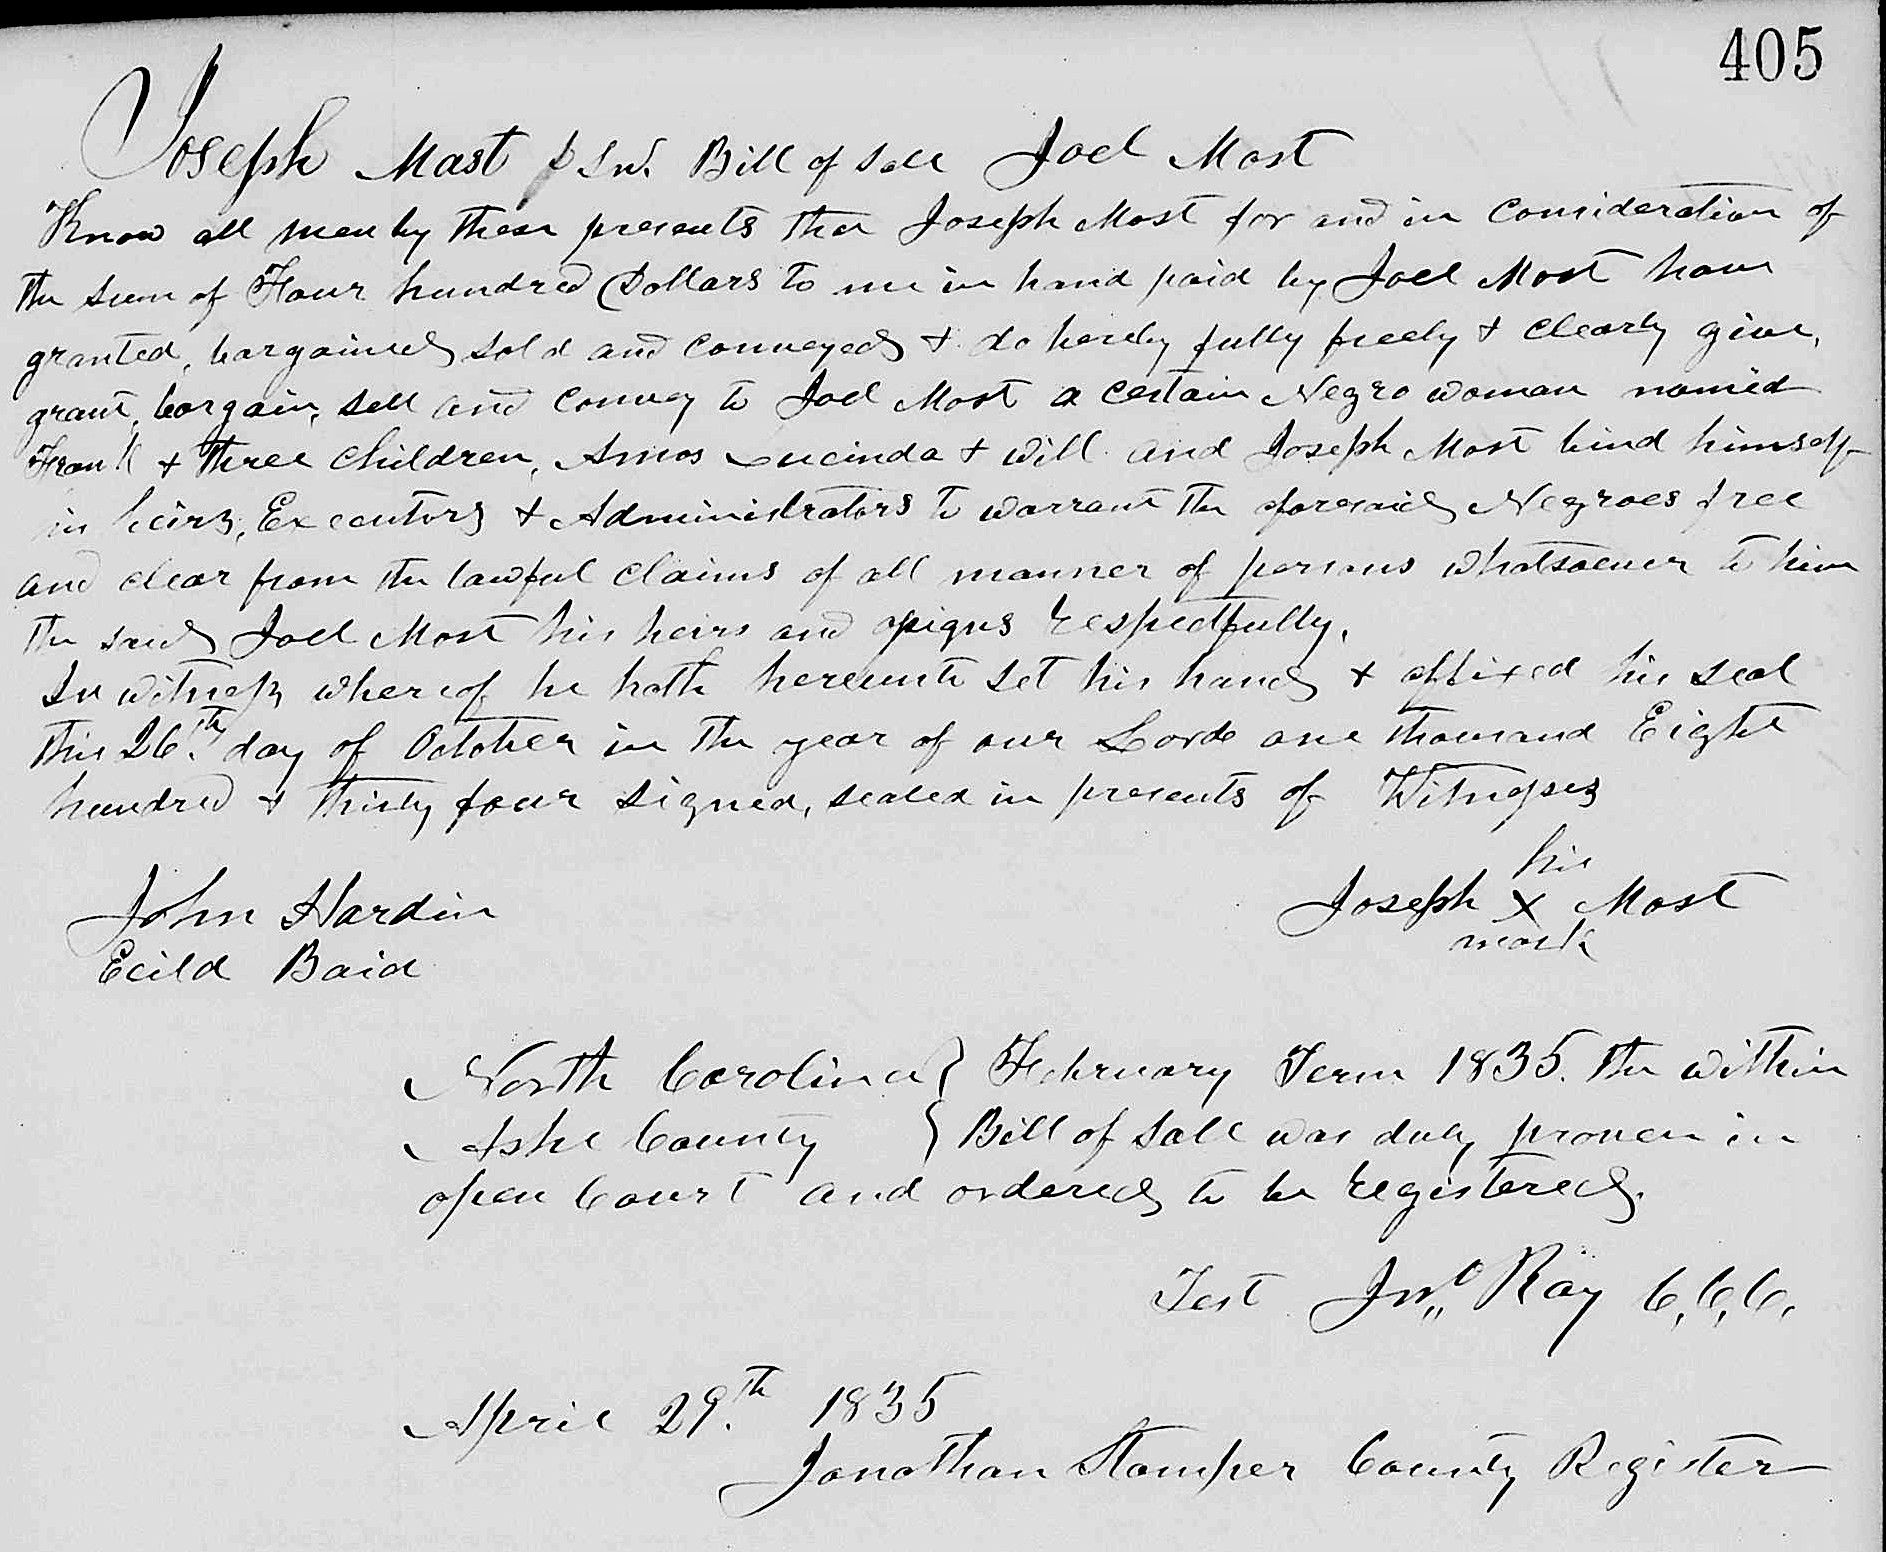 405
Joseph Mast Bill of Sale Joel Mast
Know all men by these presents tha Joseph Mast for and in consideration of
the sum of Four hundred Dollars to me in hand paid by Joel Mast have
granted, bargained sold and conveyed & do hereby fully freely & clearly give,
grant, bargain, sell and convey to Joel Mast a certain Negro woman named
Frank & three children, Amos Lucinda & Will and Joseph Mast bind himself
in heirs, Executors & Administrators to warrant the aforesaid Negroes free
and clear from the lawful claims of all manner of persons whatsoever to him
the said Joel Mast his heirs and assigns respectfully.
In witness whereof he hath hereunto set his hand & affixed his seal
this 26th day of October in the year of our Lord one thousand Eight
hundred & thirty four signed, sealed in presents of Witnesses
his
John Hardin Joseph X Mast
mark
Ecild Baid
North Carolina } February Term 1835. The within
Ashe County } Bill of Sale was duly proven in
open Court and ordered to be registered.
Test Jno Ray C,C,C,
April 29th 1835
Jonathan Stamper County Register